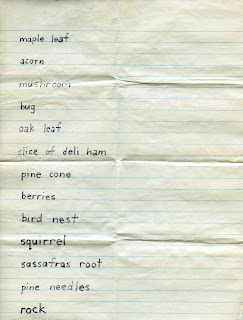 maple leaf
acorn
mushroom
bug
oak leaf
slice of deli ham
pine cone
berries
bird nest
squirrel
sassafras root
pine needles
rock